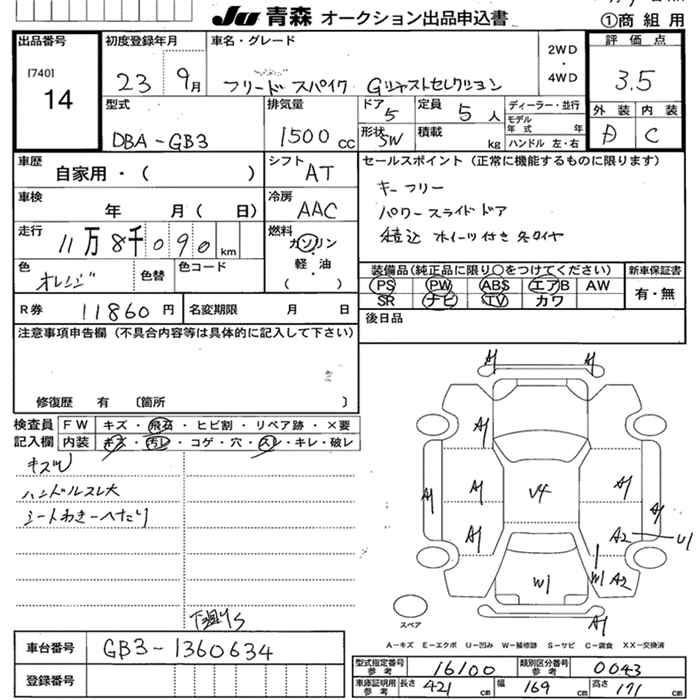 Ju 青森 オークション出品申込書
①商組用
出品番号
[740]
14
初度登録年月
23 9月
車名・グレード
フリード スパイク Gジャストセレクション
2WD
・
4WD
評価点
3.5
外装 内装
D C
型式
DBA-GB3
排気量
1500 cc
ドア 5
形状 SW
定員 5 人
積載 kg
ディーラー・並行
モデル年式 年
ハンドル 左・右
車歴
自家用・( )
シフト AT
車検
年 月( 日)
冷房 AAC
走行 11万8千090 km
燃料
ガソリン
・
軽油
( )
色 オレンジ
色替
色コード
R券 11860円
名変期限 月 日
セールスポイント(正常に機能するものに限ります)
キーフリー
パワースライドドア
積込 ホイーツ付き冬タイヤ
装備品(純正品に限り○をつけてください)
PS PW ABS エアB AW
SR ナビ TV カワ
新車保証書
有・無
後日品
注意事項申告欄(不具合内容等は具体的に記入して下さい)
修復歴 有 〔箇所 〕
検査員記入欄
FW キズ・飛石・ヒビ割・リペア跡・×要
内装 キズ・汚レ・コゲ・穴・スレ・キレ・破レ
キズ小
ハンドルスレ大
シートわきーへたり
下廻りS
車台番号 GB3-1360634
登録番号
A1 A1
A1
A1 A1 V4 A1 A1
A1 A2 U1
W1 W1 A2
A1
スペア
A－キズ E－エクボ U－凹み W－補修跡 S－サビ C－腐食 XX－交換済
型式指定番号 参考 16100
類別区分番号 参考 0043
車庫証明用 参考 長さ 421 cm 幅 169 cm 高さ 171 cm